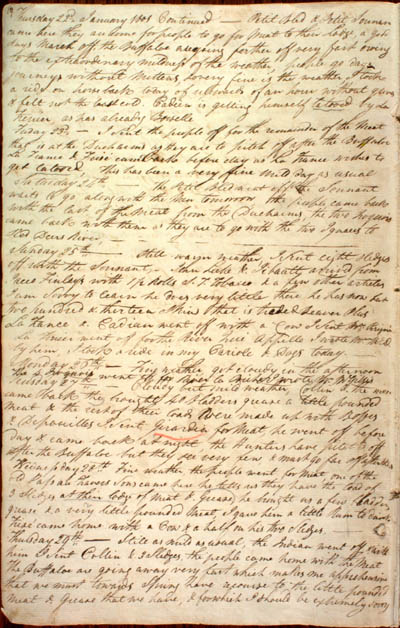 Thursday 22d. January 1801 Continued — Petit Bled & Petit Sonnan
came here they are come for people to go for meat to their Lodge a good
days March off the Buffalo are going farther off very fast owing
to the extraordinary mildness of the weather, people go days
Journeys without Mittens, so very fine is the weather, I took
a ride on horseback today of upwards of an hour without gloves
& felt not the least cold. Cadien is getting himself tatooed by La
as has already Roselle
Friday 23d. — I sent the people off for the remainder of the Meat
that is at the Duchaims as they are to pitch off after the Buffaloe
La France & came back before day as La France wishes to
get tatooed, this has been a very fine mild day as usual
Saturday 24th — The Petit Bled went off the Sonnant
waits to go along with the Men tomorrow the people came back
with the last of the Meat from the Duchaims, the two
came back with them as they are to go with the two Squaws to
Red Deers River —
Sunday 25th — Still warm weather, I sent eight Sledges
off with the Sonnant, & arrived from
Finlay's with Rolls S. T. Tobacco & a few other articles
I am sorry to learn he does very little there he has now but
two hundred & thirteen Skins that is traded Beaver Plus
La France & Cadien went off with a Cow I sent Mr.
La went off for the River Qui Appelle I wrote Mr.
by him, I took a ride in my Cariole & Dogs today
Monday — Fine weather, got cloudy in the afternoon
the went off for
Tuesday 27th — Cloudy but mild weather Collin & men
came back they brought Bladders grease a little pounded
Meat & the rest of their Loads were made up with Bosses
& Depouilles I sent Girardin for Meat he went off before
day & came back at night the Hunters have
after the Buffaloe but they are very few & must go far off after them
Wednesday 28th Fine weather the people went for Meat one of the
Old here he tells us they have the Load of
3 Sledges at their Lodge of Meat & Grease, he brought us a few Bladders
grease & a very little pounded Meat, I gave him a little Rum to drink
came home with a Cow & a half on his two Sledges.
Thursday 29th — Still as mild as usual, the Indian went off with
him I sent Collin & 3 Sledges the people came home with the Meat
The Buffaloe are going away very fast which makes me apprehensive
that we must towards Spring have recourse to the little pounded
Meat & Grease that we have, & for which I should be extremely sorry